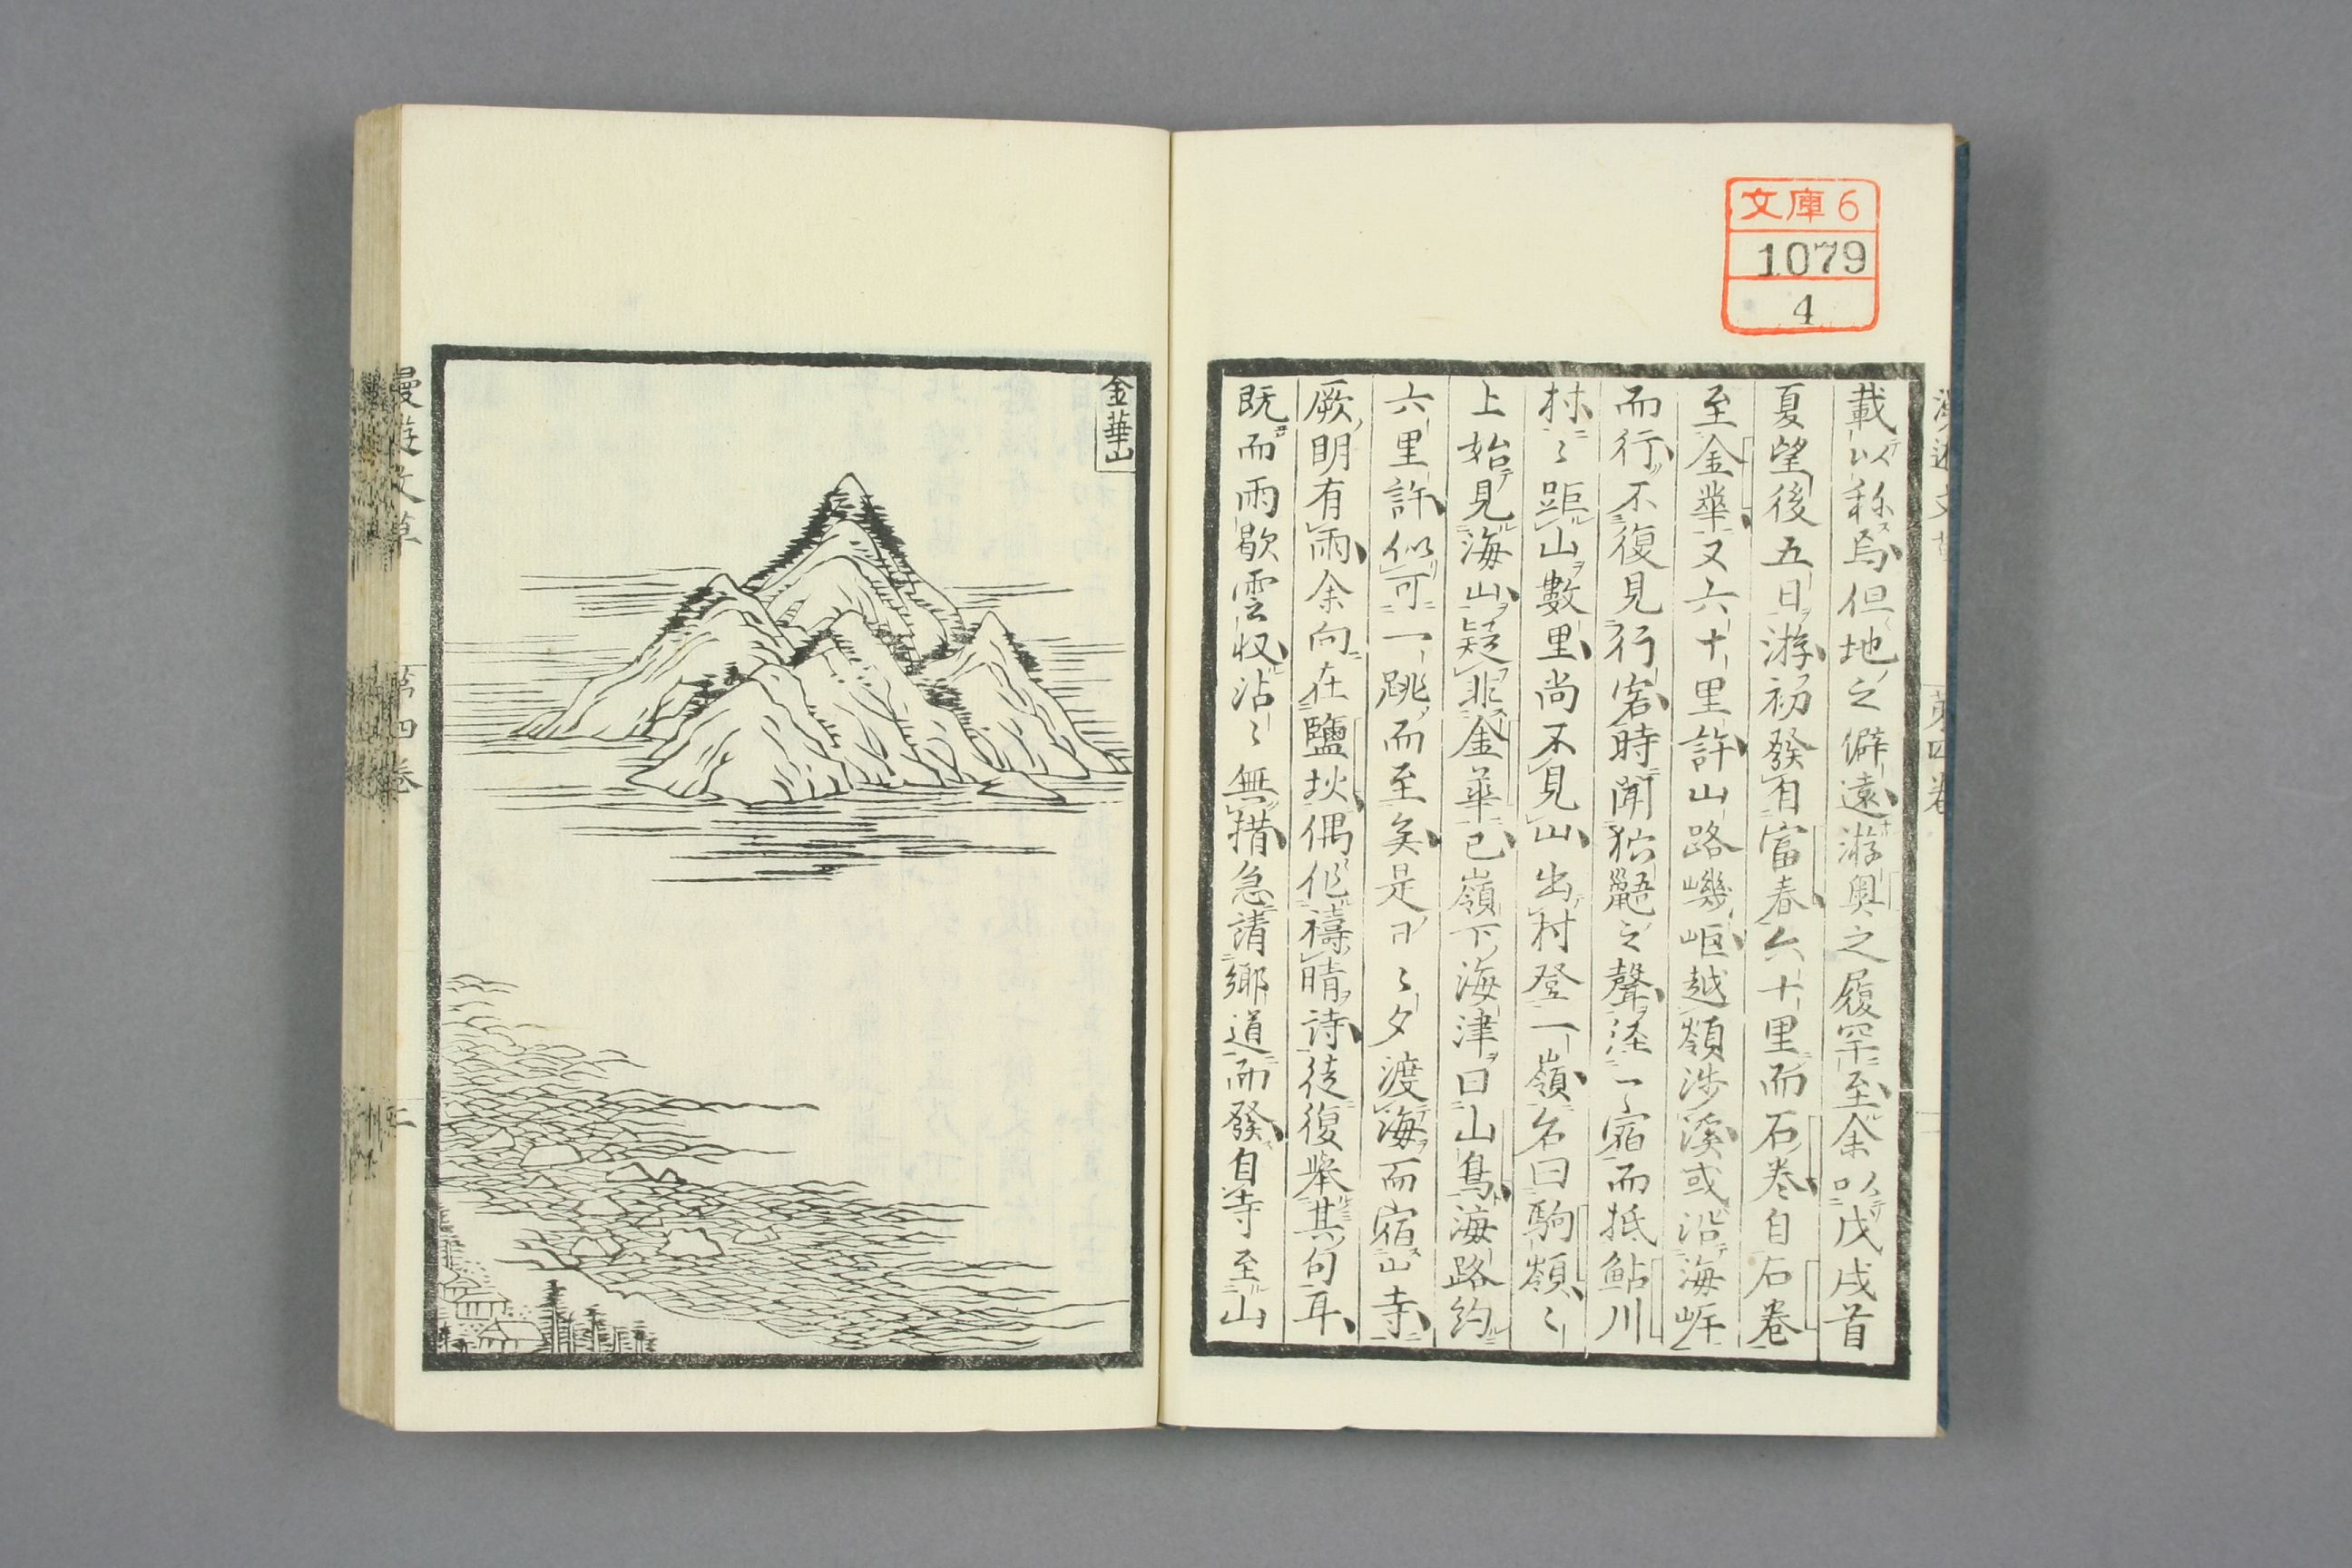 文庫6
1079
4
載以称焉但地之僻遠游奥之履罕至余以戊戌首
夏望後五日游初發自富春六十里而石巻自石巻
至金華又六十里許山路嶬岖越嶺渉溪或沿海岸
而行不復見行客時聞狖鼯之聲迳一宿而抵鮎川
村〻距山數里尚不見山出村登一嶺名曰駒嶺〻
上始見海山疑非金華已嶺下海津曰山鳥海路約
六里許似可一跳而至矣是日〻夕渡海而宿山寺
厥明有雨余向在鹽扖偶作禱晴詩徒復擧其句耳
既而雨歇雲収沾〻無措急請鄉道而發自寺至山
金華山
漫遊文草
第四卷
二